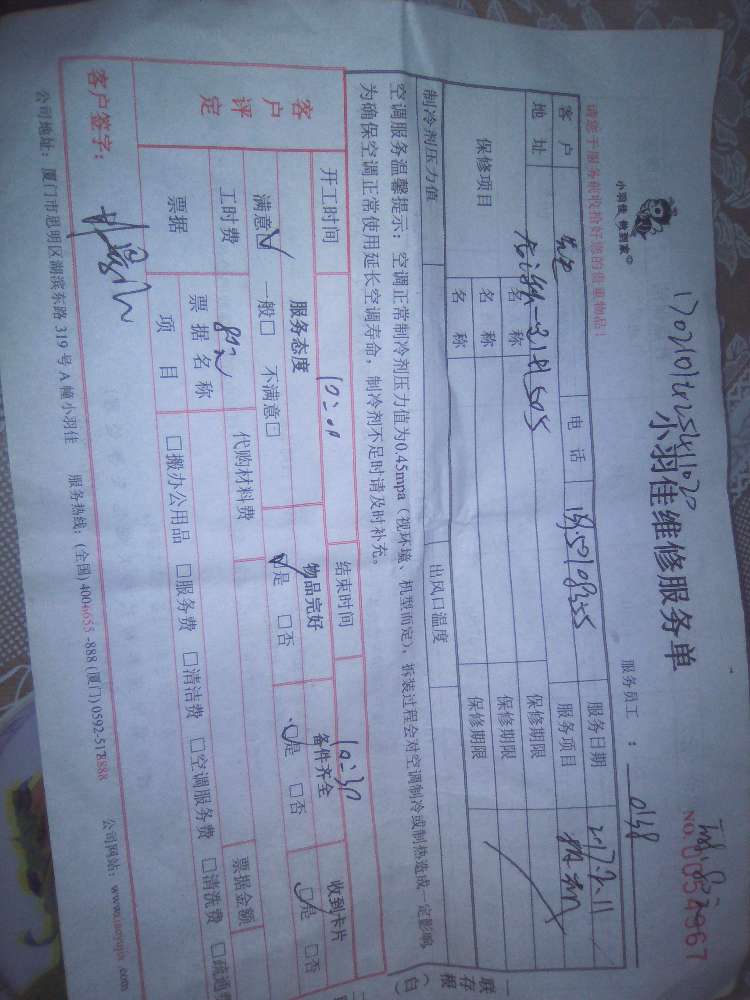 小羽佳 做到家
小羽佳维修服务单
服务员工 : 0138
NO. 0054967
请您于服务前收拾好您的贵重物品!
客户 电话 服务日期 2017.9.11
地址 服务项目
保修项目 名称 保修期限
名称 保修期限
名称 保修期限
制冷剂压力值 出风口温度
空调服务温馨提示:空调正常制冷剂压力值为0.45mpa(视环境、机型而定),拆装过程会对空调制冷或制热造成一定影响
为确保空调正常使用延长空调寿命,制冷剂不足时请及时补充。
一联存根(白)
开工时间 10:00 结束时间 10:30
客户评定 服务态度 物品完好 备件齐全 收到卡片
满意☑ 一般□ 不满意□ ☑是 □否 ☑是 □否 ☑是 □否
工时费 80元 代购材料费
票据 票据名称 票据金额
项目 □搬办公用品 □服务费 □清洁费 □空调服务费 □清洗费 □疏通费
客户签字:
公司地址:厦门市思明区湖滨东路 319 号 A 幢小羽佳 服务热线:(全国)4006655-888(厦门)0592-5178888 公司网站:www.xiaoyujia.com